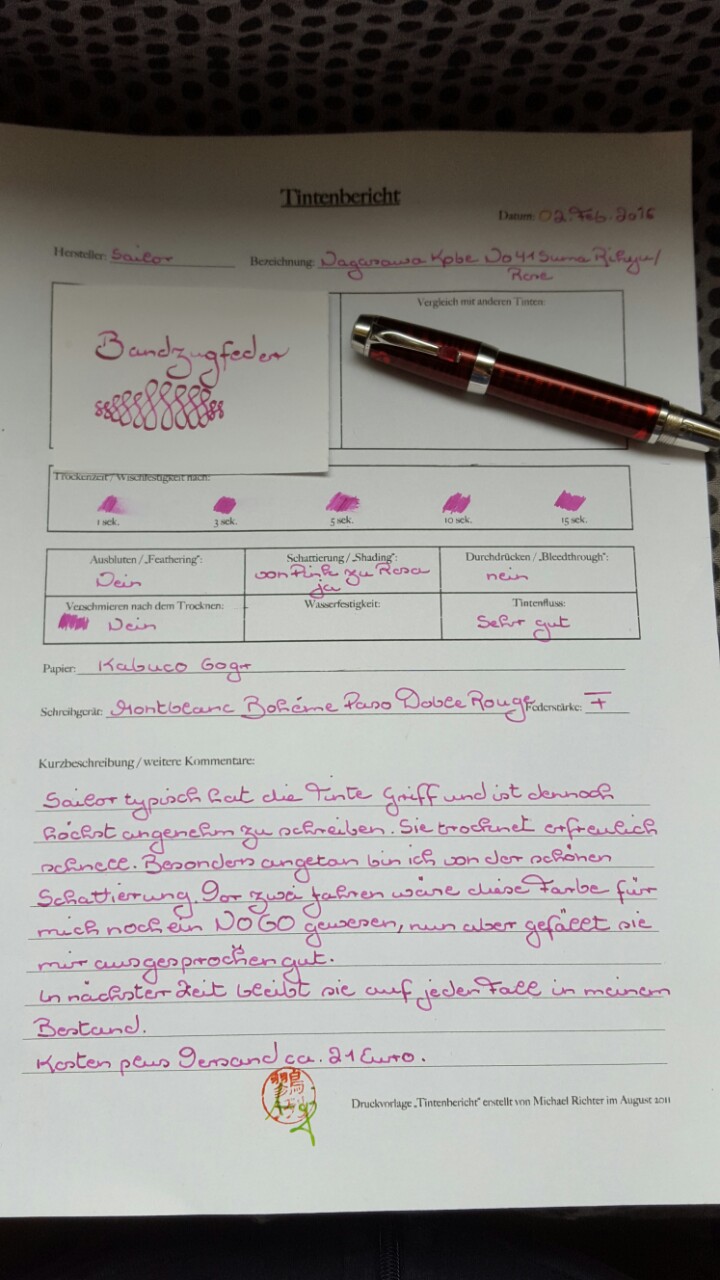 Tintenbericht
Datum: 02. Feb. 2016
Hersteller: Sailor
Bezeichnung: Nagasawa Kobe No 41 Suma Rikyu /
Rose
Vergleich mit anderen Tinten:
Bandzugfeder
Trockenzeit / Wischfestigkeit nach:
1 sek. 3 sek. 5 sek. 10 sek. 15 sek.
Ausbluten / „Feathering“: Schattierung / „Shading“: Durchdrücken / „Bleedthrough“:
Nein von Pink zu Rosa nein
ja
Verschmieren nach dem Trocknen: Wasserfestigkeit: Tintenfluss:
Nein Sehr gut
Papier: Kabuco 60gr
Schreibgerät: Montblanc Bohéme Paso Doble Rouge Federstärke: F
Kurzbeschreibung / weitere Kommentare:
Sailor typisch hat die Tinte Griff und ist dennoch
höchst angenehm zu schreiben. Sie trocknet erfreulich
schnell. Besonders angetan bin ich von der schönen
Schattierung. Vor zwei Jahren wäre diese Farbe für
mich noch ein NOGO gewesen, nun aber gefällt sie
mir ausgesprochen gut.
In nächster Zeit bleibt sie auf jeden Fall in meinem
Bestand.
Kosten plus Versand ca. 21 Euro.
Druckvorlage „Tintenbericht“ erstellt von Michael Richter im August 2011